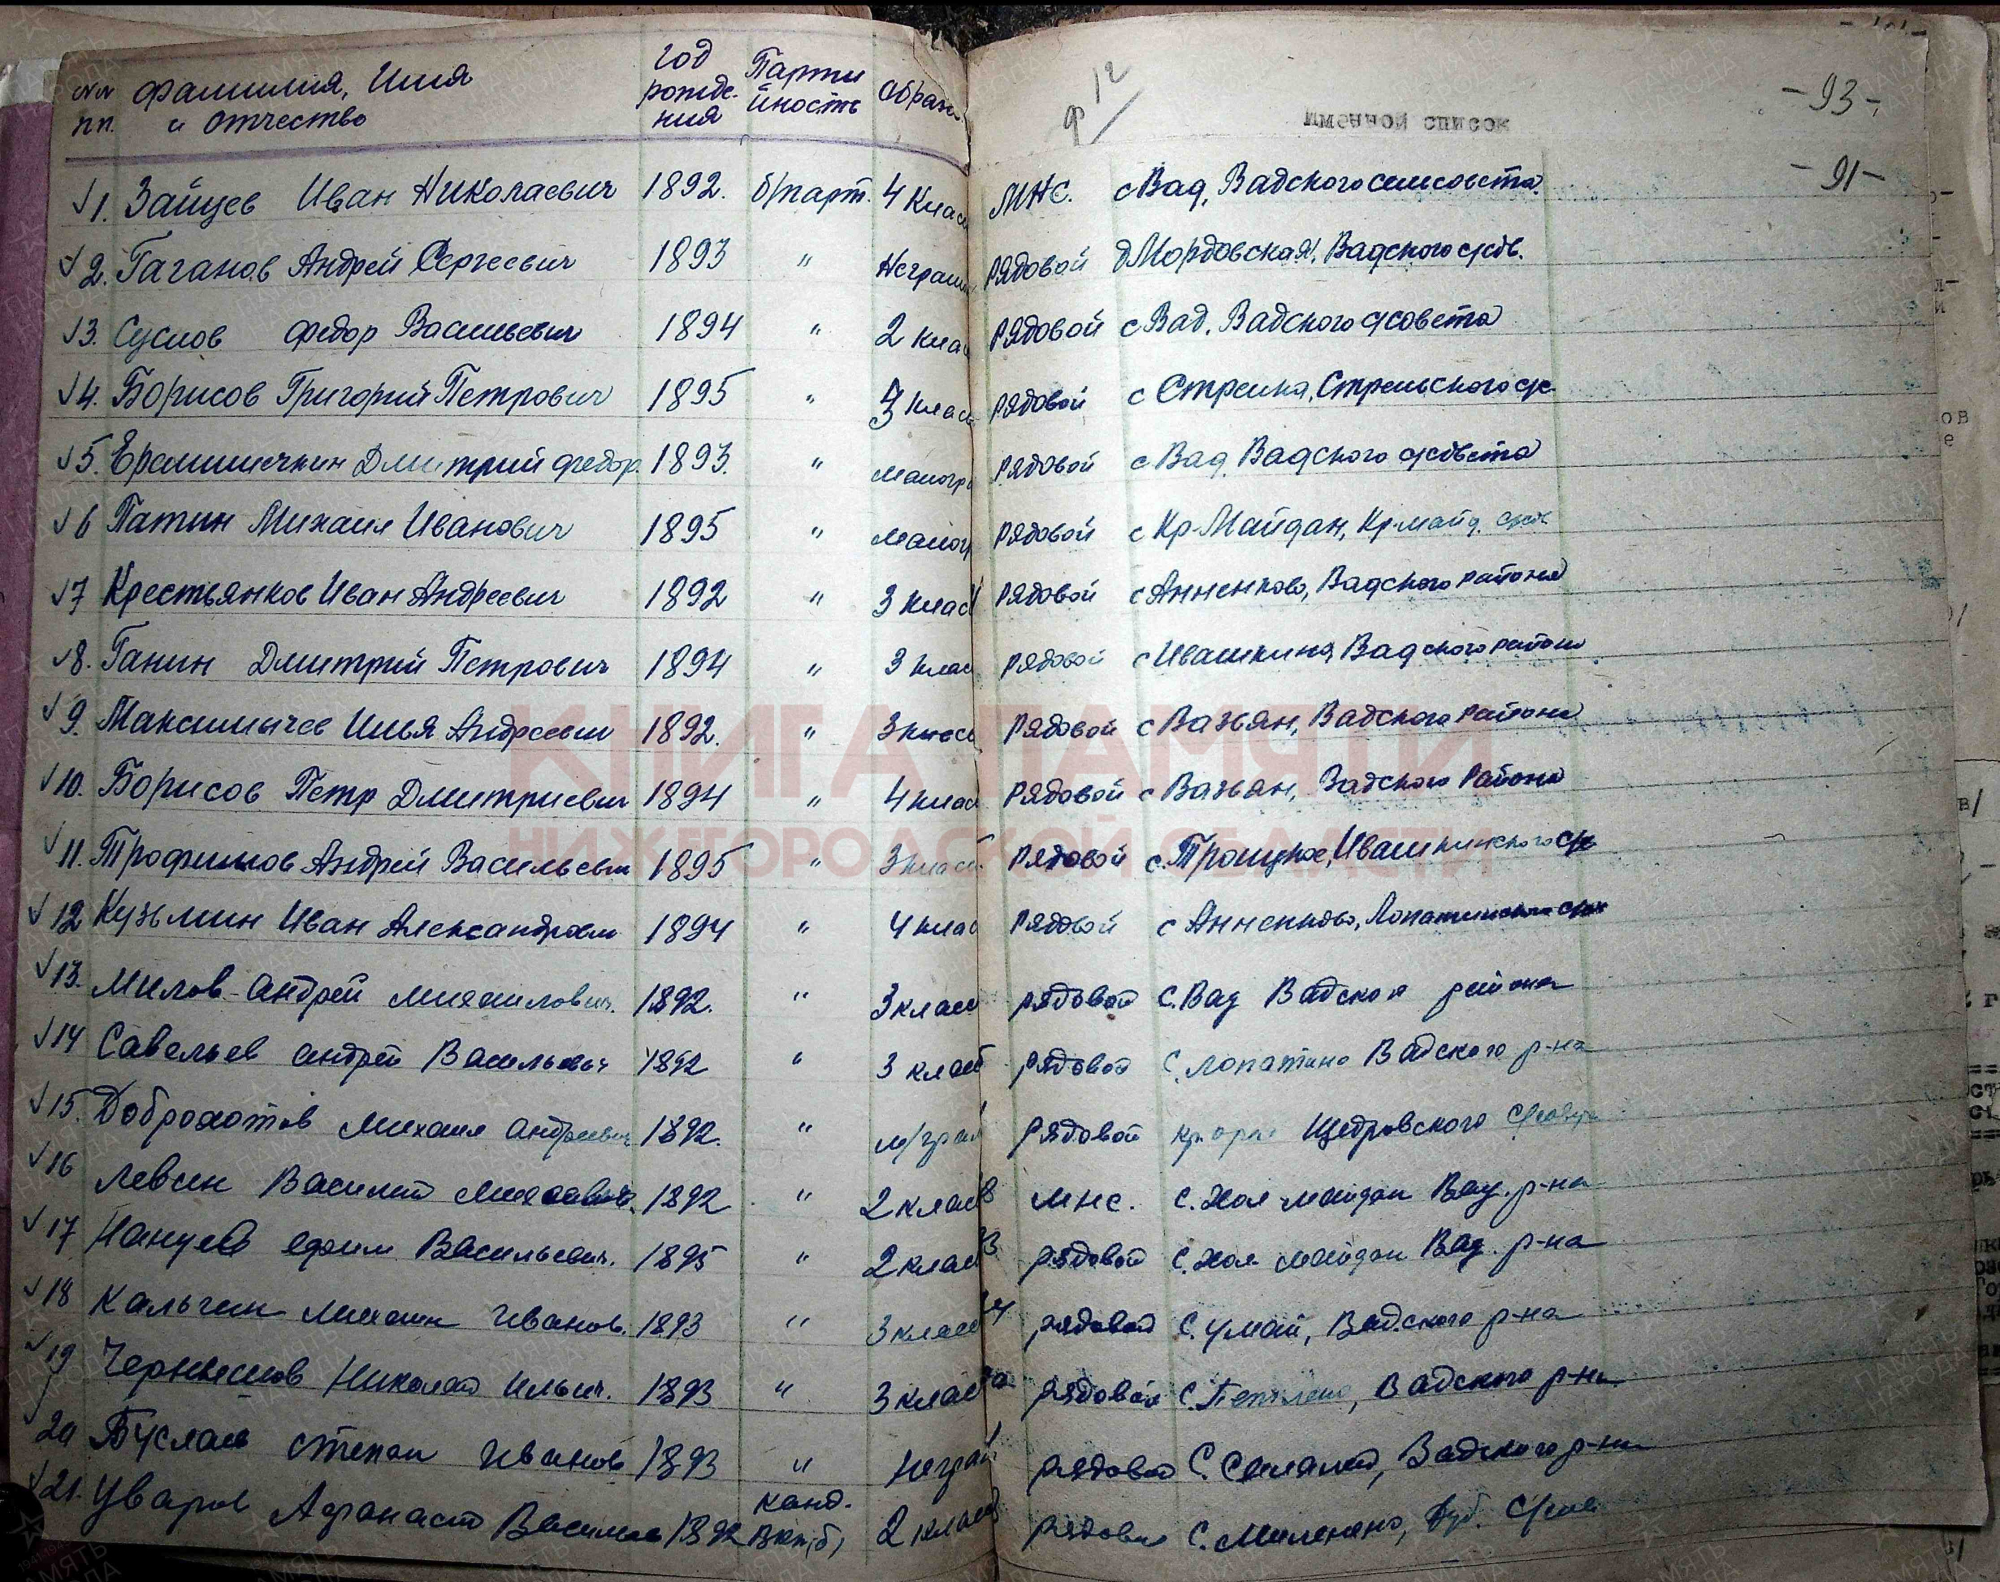 №№ пп.
Фамилия, Имя и отчество
год рождения
Партийность
образ
Ф 12
Именной список
-93-
-91-
1. Зайцев Иван Николаевич 1892. б/парт. 4 клас МНС. с Вад, Вадского сельсовета.
2. Гаганов Андрей Сергеевич 1893 " Неграм рядовой д Мордовская, Вадского с/сов.
3. Суслов Федор Васильевич 1894 " 2 клас рядовой с Вад, Вадского с/совета
4. Борисов Григорий Петрович 1895 " 3 клас рядовой с Стрелка, Стрельского с/с
5. Ерамишечкин Дмитрий Федор. 1893. " малогр рядовой с Вад Вадского с/совета
6 Патин Михаил Иванович 1895 " малогр рядовой с Кр-Майдан, Кр-майд. с/сов
7 Крестьянков Иван Андреевич 1892 " 3 клас рядовой с Анненково, Вадского района
8. Ганин Дмитрий Петрович 1894 " 3 клас рядовой с Ивашкина Вадского района
9. Максимычев Илья Андреевич 1892. " 3 клас рядовой с Вазьян, Вадского района
10. Борисов Петр Дмитриевич 1894 " 4 клас рядовой с Вазьян, Вадского района
11. Трофимов Андрей Васильевич 1895 " 3 класс рядовой с. Троицкое, Ивашкинского с/с
12 Кузьмин Иван Александрович 1894 " 4 клас рядовой с Анненково, Лопатинского с/сов
13. Милов Андрей Михаилович. 1892. " 3 клас рядовой С. Вад Вадског района
14 Савельев Андрей Васильевич 1892 " 3 класс рядовой С. Лопатино Вадского р-на
15. Доброхотов Михаил Андреевич 1892. " м/грам рядовой Щедровского
16 Левин Василий 1892 " 2 класс мнс. С. Хол майдан Вад. р-на
17 Ефим Васильевич. 1895 " 2 клас рядовой С. Хол. майдан Вад. р-на
18 Кальгин Михаил Иванов. 1893 " 3 класс рядовой С. Умай, Вадского р-на
19 Чернышов Николай Ильич. 1893 " 3 клас рядовой С. Вадского р-на
20 Буслаев Степан Иванов 1893 " неграм рядовой С. Вадского р-на
21. Уваров Афанасий Васильев 1892 канд. ВКП(б) 2 класс рядовой С. Дуб.
КНИГА ПАМЯТИ
НИЖЕГОРОДСКОЙ ОБЛАСТИ